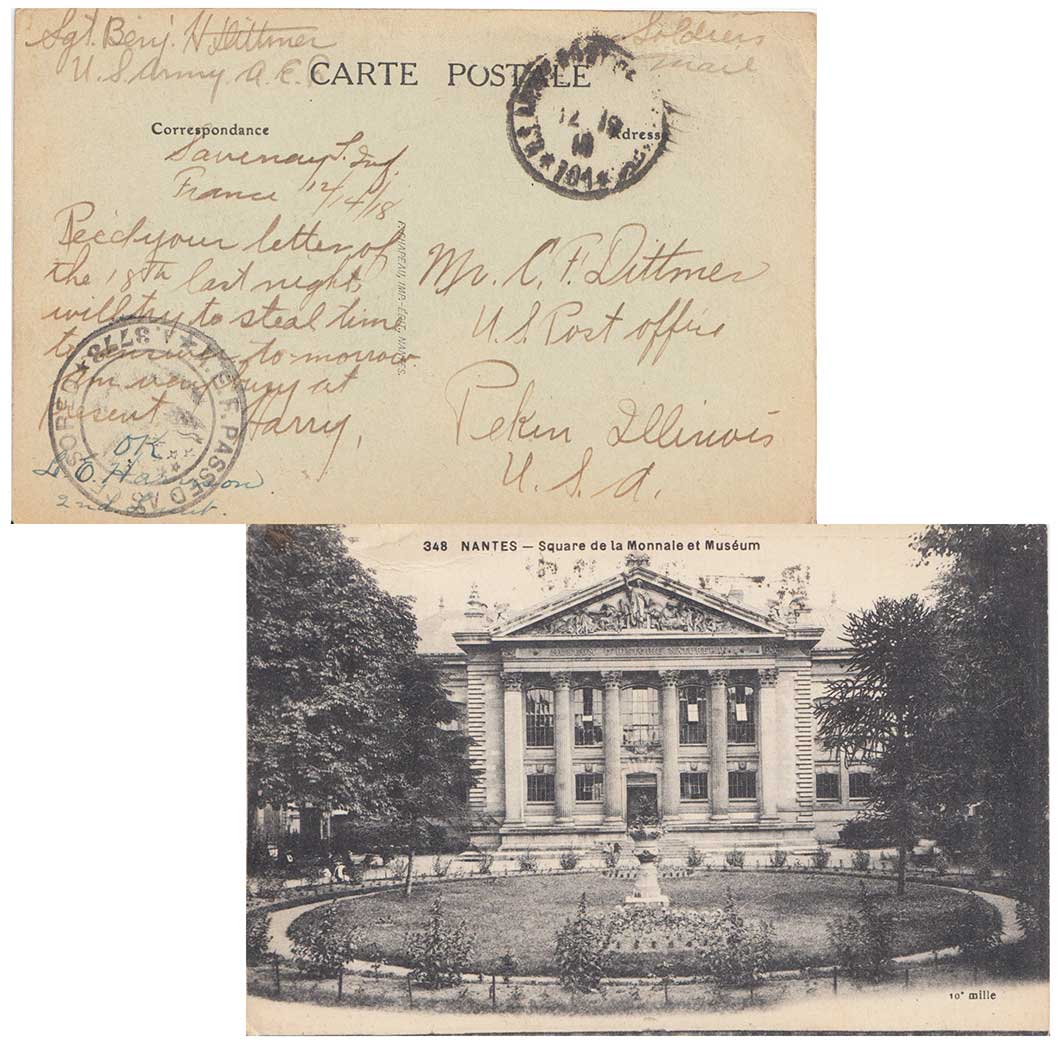 Sgt. Benj. H Dittmer
U.S. Army A.E.
Soldiers
mail
CARTE POSTALE
Correspondance
Adresse
12 19
18
★ 701 ★
Savenay L. Inf.
France 12/14/18
Rec'd your letter of
the 18th last night,
will try to steal time
to answer to-morrow
am very busy at
present Harry,
P. CHAPEAU, IMP.-EDIT., NANTES.
Mr. C. F. Dittmer
U.S. Post office
Pekin Illinois
U. S. A.
PASSED AS CENSORED ★ A.3773 ★
OK.
L E. Harrison
2nd Lieut.
348 NANTES — Square de la Monnaie et Muséum
MUSEUM D'HISTOIRE NATURELLE
10e mille